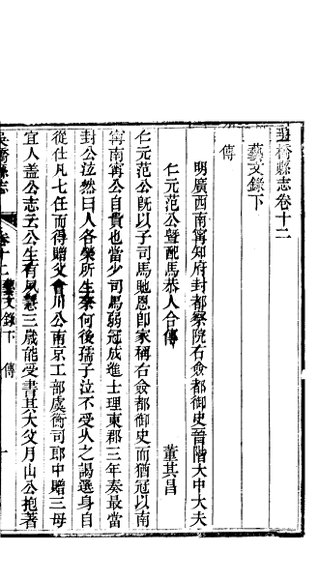 吳橋縣志卷十二
藝文錄下
傳
明廣西南寧知府封都察院右僉都御史晉階大中大夫
仁元范公暨配馬恭人合傳 董其昌
仁元范公旣以子司馬貤恩卽家稱右僉都御史而猶冠以南
寗南寗公自貴也當少司馬弱冠成進士理東郡三年奏最當
封公泫然曰人各榮所生柰何後孺子泣不受久之謁選身自
從仕凡七任而得贈父會川公南京工部虞衡司郎中贈三母
宜人蓋公志云公生有夙慧三歲能受書其大父月山公抱著
吳橋縣志 卷十二 藝文錄下 傳 十